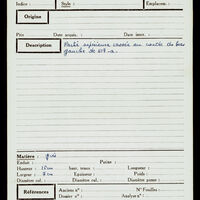 Indice : Style : Emplacem. :
Origine :
Prix Date acquis. : Date inscr. :
Description Partie supérieure cassée au coude du bras
gauche de
Matière : gris
Enduit : Patine :
Hauteur : cm haut. tenon : Longueur :
Largeur : cm Epaisseur : Poids :
Diamètre col. : Diamètre ouv. : Diamètre panse :
Références Anciens nos : No Fouilles :
Dossier no : Analyse no :